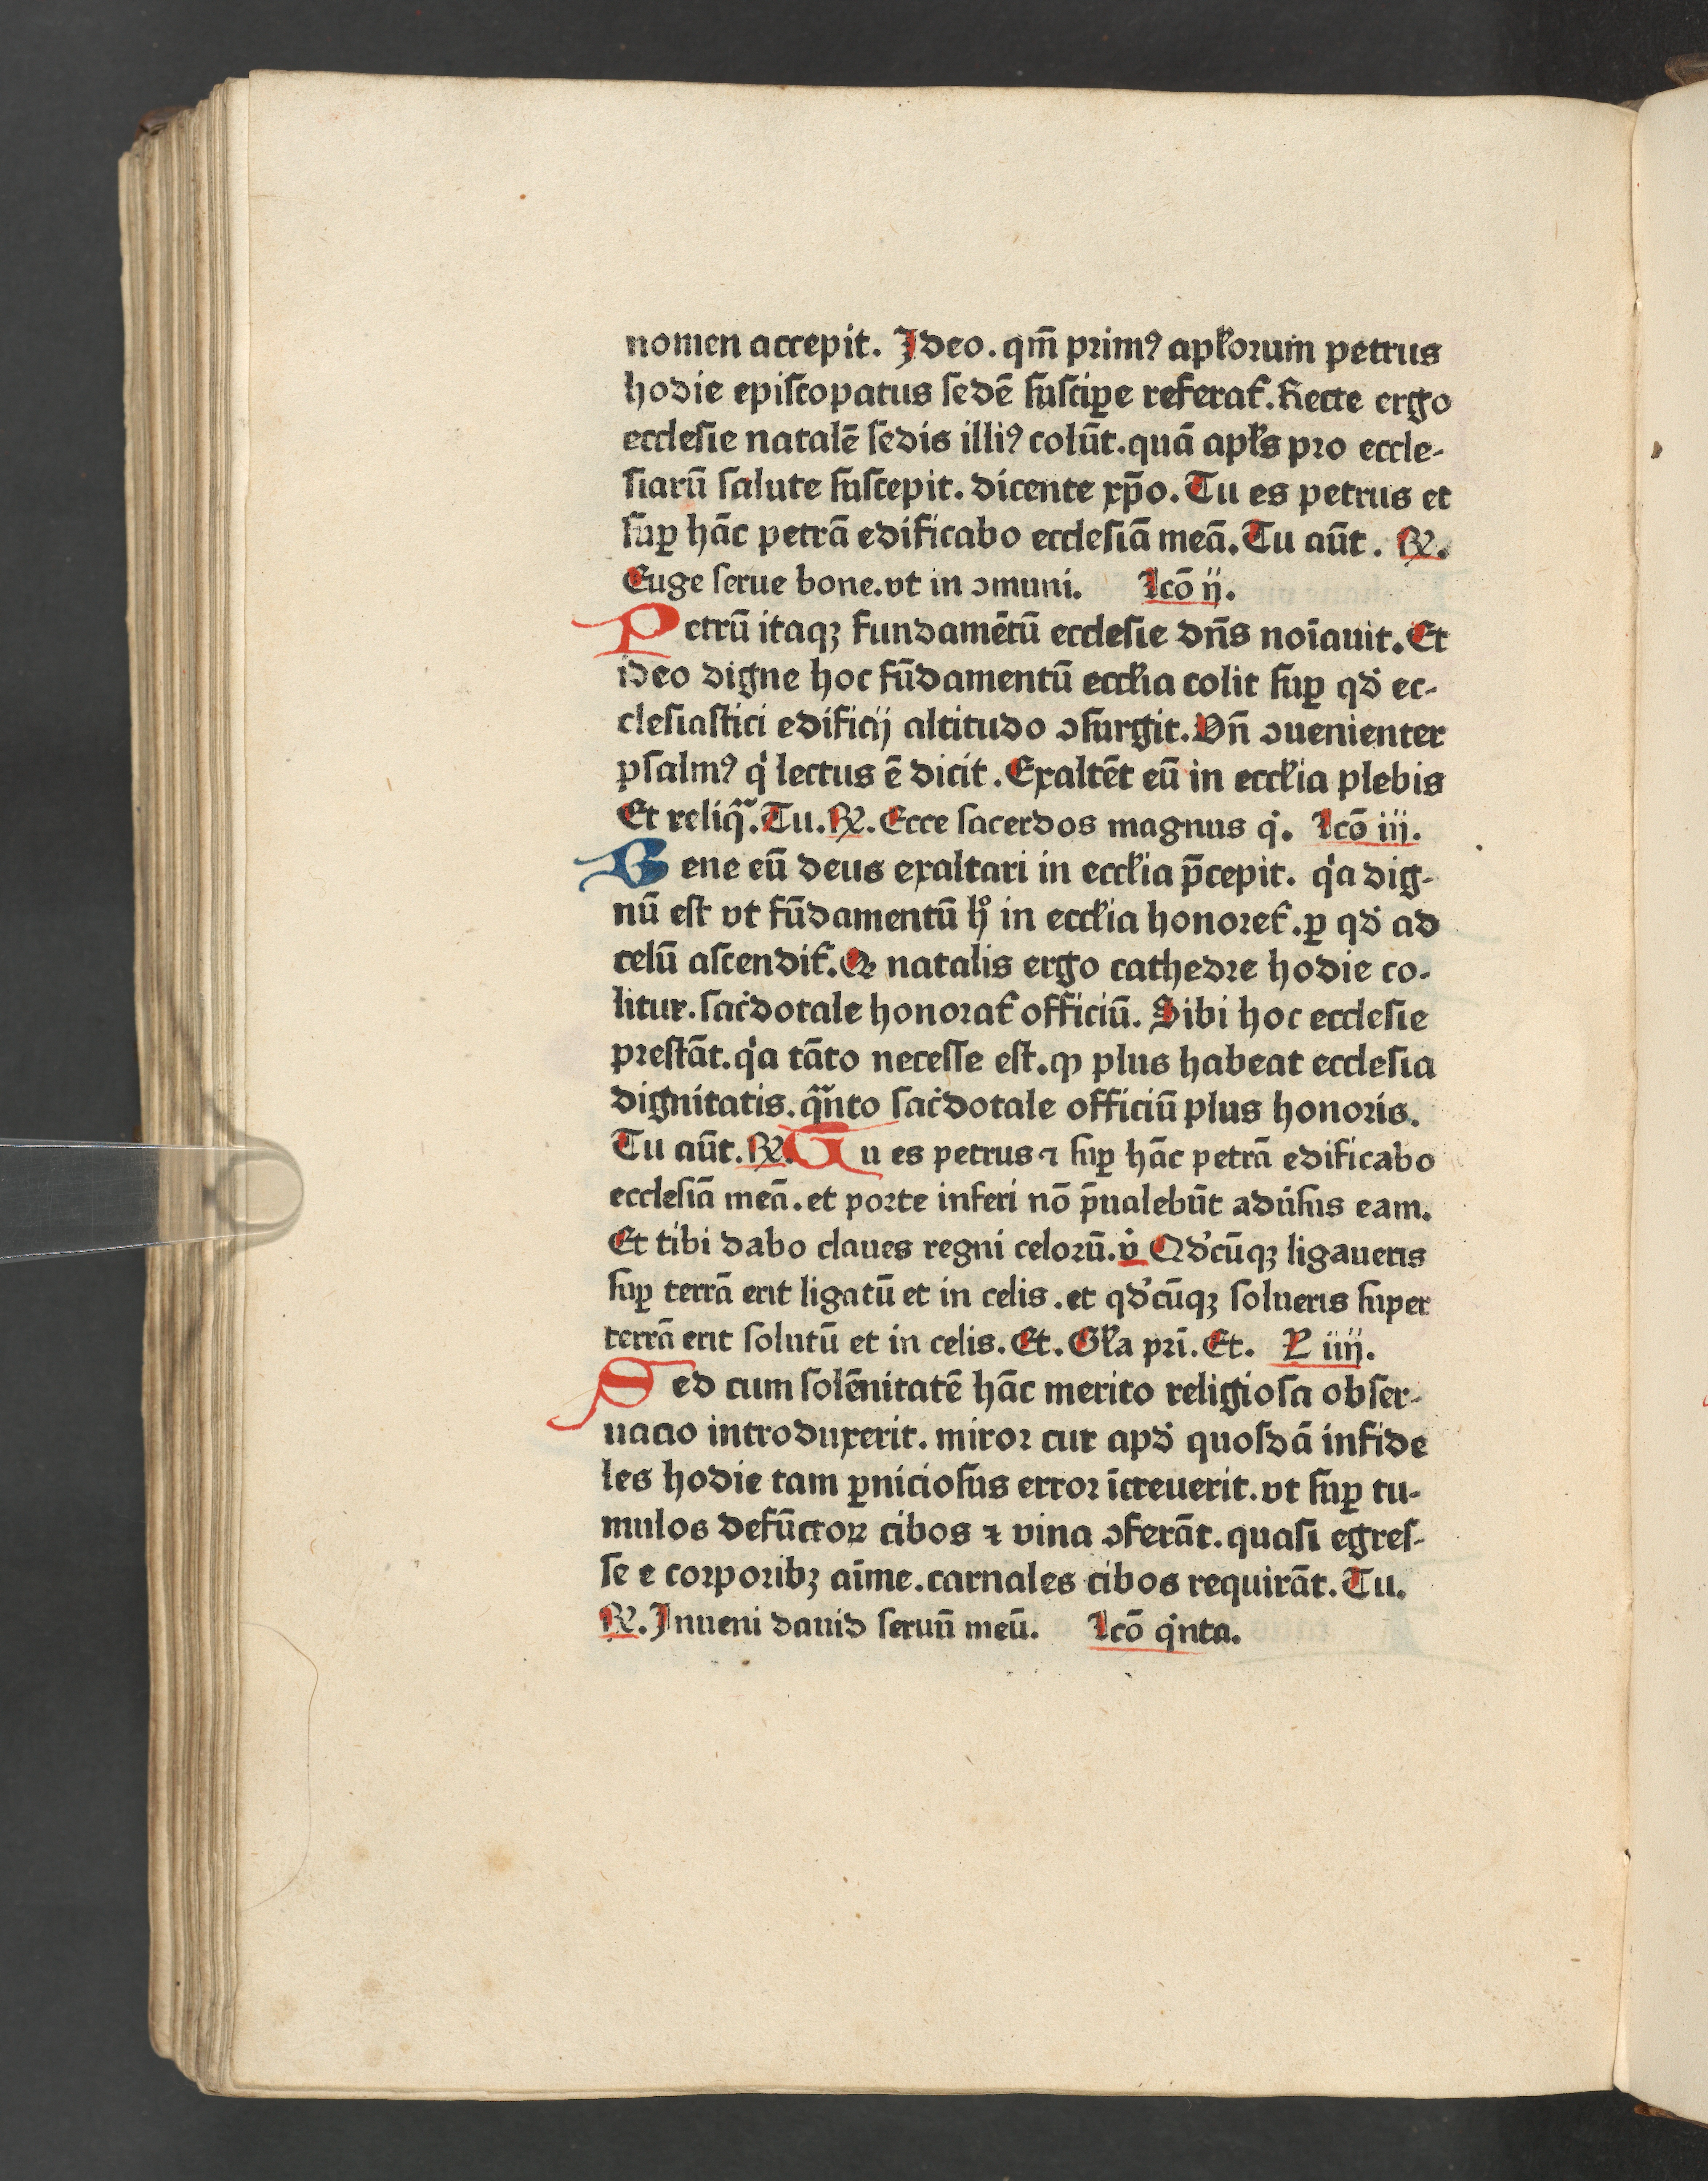 nomen accepit. Jdeo. qm̄ primꝰ apl̄oꝛum petrus
hodie epiſcopatus ſedē ſuſciꝑe referat᷑. Recte ergo
eccleſie natalē ſedis illiꝰ colūt. quā apl̄s pꝛo eccle-
ſiarū ſalute ſuſcepit. dicente xp̄o. Tu es petrus et
ſuꝑ hāc petrā edificabo eccleſiā meā. Tu aūt. ℟.
Euge ſerue bone. vt in ↄmuni. Lcō ij.
Petrū itaqꝫ fundamētū eccleſie dn̄s noīauit. Et
ideo digne hoc fūdamentū eccl̄ia colit ſuꝑ qd̓ ec-
cleſiaſtici edificij altitudo ↄſurgit. Vn̄ ↄuenienter
pſalmꝰ qͥ lectus ē dicit. Exaltēt eū in eccl̄ia plebis
Et reliqᷓ. Tu. ℟. Ecce ſacerdos magnus qͥ. Lcō iij.
Bene eū deus exaltari in eccl̄ia p̄cepit. qͥa dig-
nū eſt vt fūdamentū hͦ in eccl̄ia honoꝛet᷑. ꝑ qd̓ ad
celū aſcendit᷑. Qꝛ natalis ergo cathedꝛe hodie co-
litur. ſac̓dotale honoꝛat᷑ officiū. Sibi hoc eccleſie
pꝛeſtāt. qͥa tāto neceſſe eſt. ꝙ plus habeat eccleſia
dignitatis. qᷓnto ſac̓dotale officiū plus honoꝛis.
Tu aūt. ℟. Tu es petrus ⁊ ſuꝑ hāc petrā edificabo
eccleſiā meā. et poꝛte inferi nō p̄ualebūt adu̓ſus eam.
Et tibi dabo claues regni celoꝛū. v̓ Qd̓cūqꝫ ligaueris
ſuꝑ terrā erit ligatū et in celis. et qd̓cūqꝫ ſolueris ſuper
terrā erit ſolutū et in celis. Et. Gl̄a pꝛī. Et. L̄ iiij.
Sed cum ſolēnitatē hāc merito religioſa obſer-
uacio introduxerit. miroꝛ cur apd̓ quoſdā infide
les hodie tam ꝑnicioſus erroꝛ īcreuerit. vt ſuꝑ tu-
mulos defūctoꝝ cibos ⁊ vina ↄferāt. quaſi egreſ-
ſe e coꝛpoꝛibꝫ aīme. carnales cibos requirāt. Tu.
℟. Jnueni dauid ſeruū meū. Lcō qͥnta.